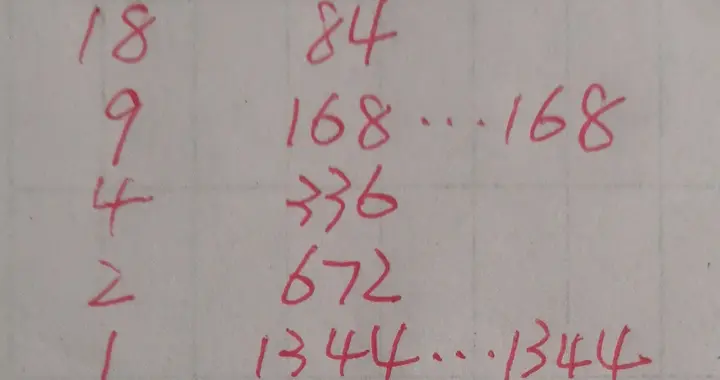 18 84
9 168···168
4 336
2 672
1 1344···1344